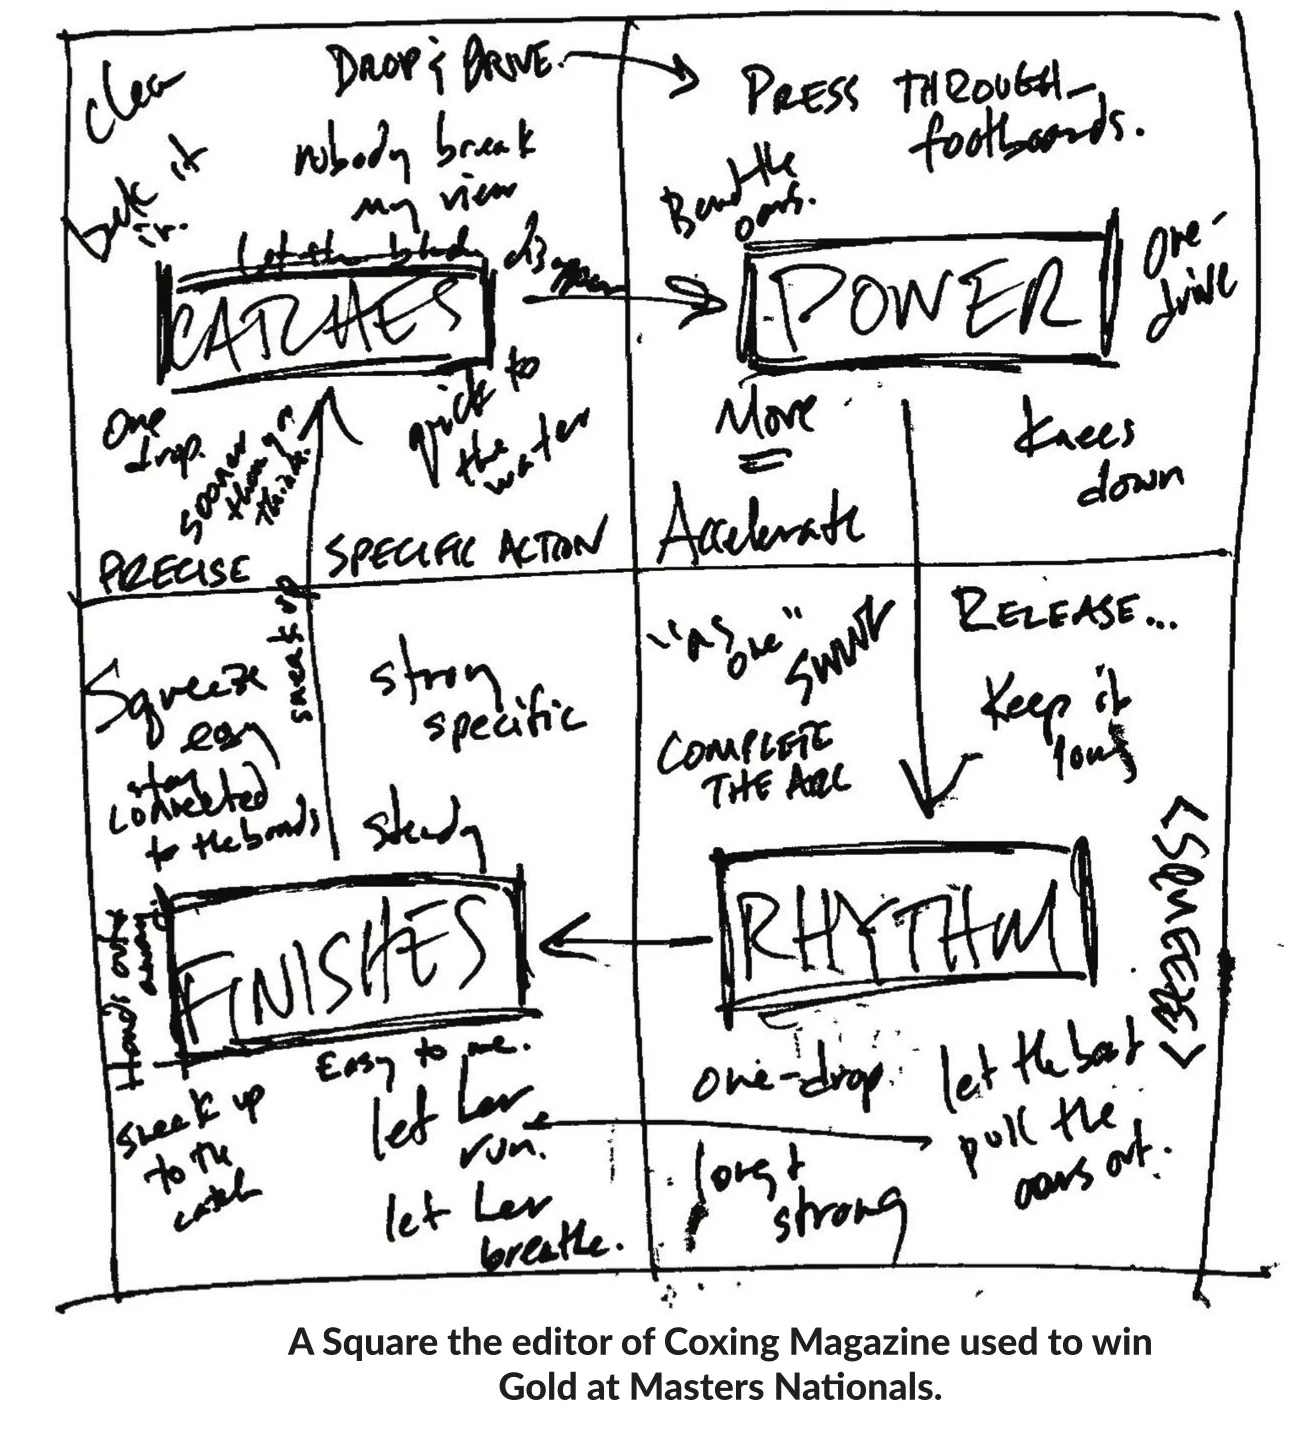 clean
back it
in.
DROP & DRIVE.
nobody break
my view
Let the blade
disappear
CATCHES
One
drop.
sooner
than you
think.
quick to
the
water
PRECISE
SPECIFIC ACTION
PRESS THROUGH
footboards.
Bend the
oars.
POWER
one-
drive
Move
Knees
down
Accelerate
Squeeze
easy
stay
connected
to the boards
sneak up
strong
specific
steady
FINISHES
Hands out &
away
Easy to me.
sneak up
to the
catch
let her
run.
let her
breathe.
"as
one"
swing
COMPLETE
THE ARC
RELEASE...
Keep it
long
RHYTHM
<SQUEEZE>
one-drop
let the boat
pull the
oars out.
long &
strong
A Square the editor of Coxing Magazine used to win
Gold at Masters Nationals.